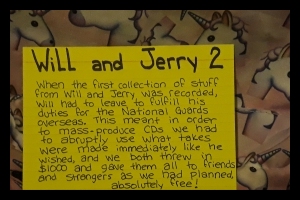 Will and Jerry 2
When the first collection of stuff
from Will and Jerry was recorded,
Will had to leave to fulfill his
duties for the National Guards
overseas. This meant in order
to mass-produce CDs we had
to abruptly use what takes
were made immediately like he
wished, and we both threw in
$1000 and gave them all to friends
and strangers as we had planned,
absolutely free!